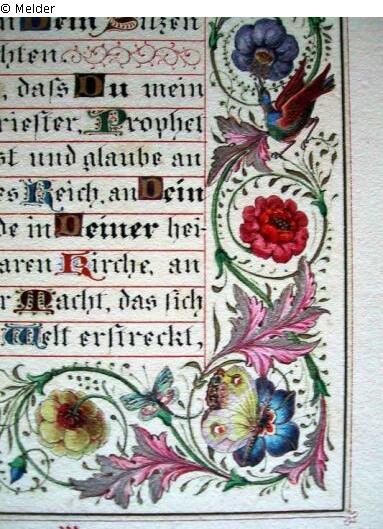 © Melder
Dein Sitzen
chten.
, dass Du mein
riester, Prophet
st und glaube an
es Reich, an Dein
de in Deiner hei-
aren Kirche, an
r Macht, das sich
Welt erstreckt,